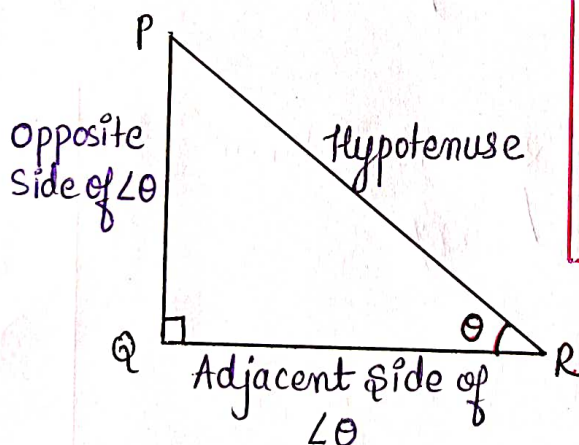 P
Opposite
Side of ∠θ
Hypotenuse
θ
Q
R
Adjacent Side of
∠θ